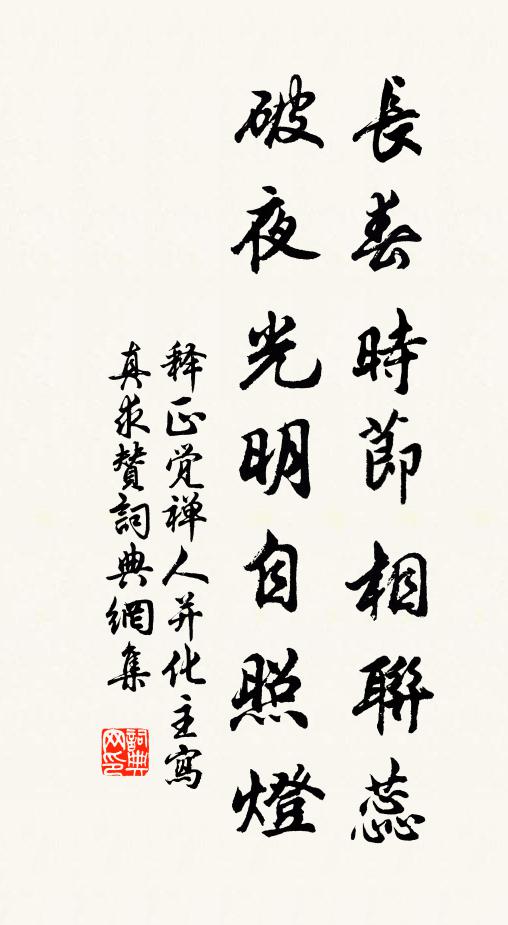 長春時節相聯蕊
破夜光明自照燈
释正觉禅人并化主寫
真求贊詞典網集
詞典网印